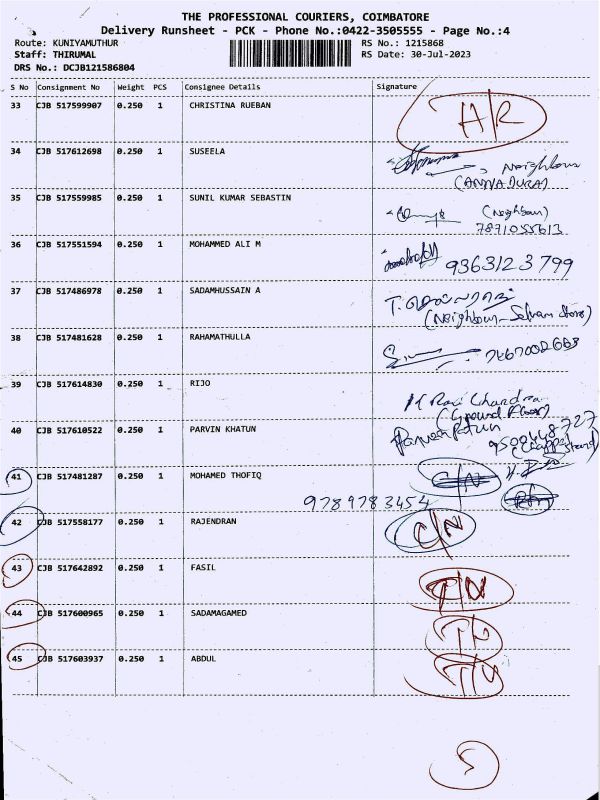 THE PROFESSIONAL COURIERS, COIMBATORE
Delivery Runsheet - PCK - Phone No.:0422-3505555 - Page No.:4
Route: KUNIYAMUTHUR RS No.: 1215868
Staff: THIRUMAL RS Date: 30-Jul-2023
DRS No.: DCJB121586804
S No Consignment No Weight PCS Consignee Details Signature
33 CJB 517599907 0.250 1 CHRISTINA RUEBAN A/R
34 CJB 517612698 0.250 1 SUSEELA Neighbour
(ANNADURAI)
35 CJB 517559985 0.250 1 SUNIL KUMAR SEBASTIN (Neighbour)
7871055613
36 CJB 517551594 0.250 1 MOHAMMED ALI M 9363123799
37 CJB 517486978 0.250 1 SADAMHUSSAIN A
(Neighbour - Selvam Store)
38 CJB 517481628 0.250 1 RAHAMATHULLA 7667002663
39 CJB 517614830 0.250 1 RIJO M Ravi Chandra
(Ground Floor)
40 CJB 517610522 0.250 1 PARVIN KHATUN
41 CJB 517481287 0.250 1 MOHAMED THOFIQ C/N
9789783454
42 CJB 517558177 0.250 1 RAJENDRAN C/N
43 CJB 517642892 0.250 1 FASIL
44 CJB 517600965 0.250 1 SADAMAGAMED
45 CJB 517603937 0.250 1 ABDUL
5